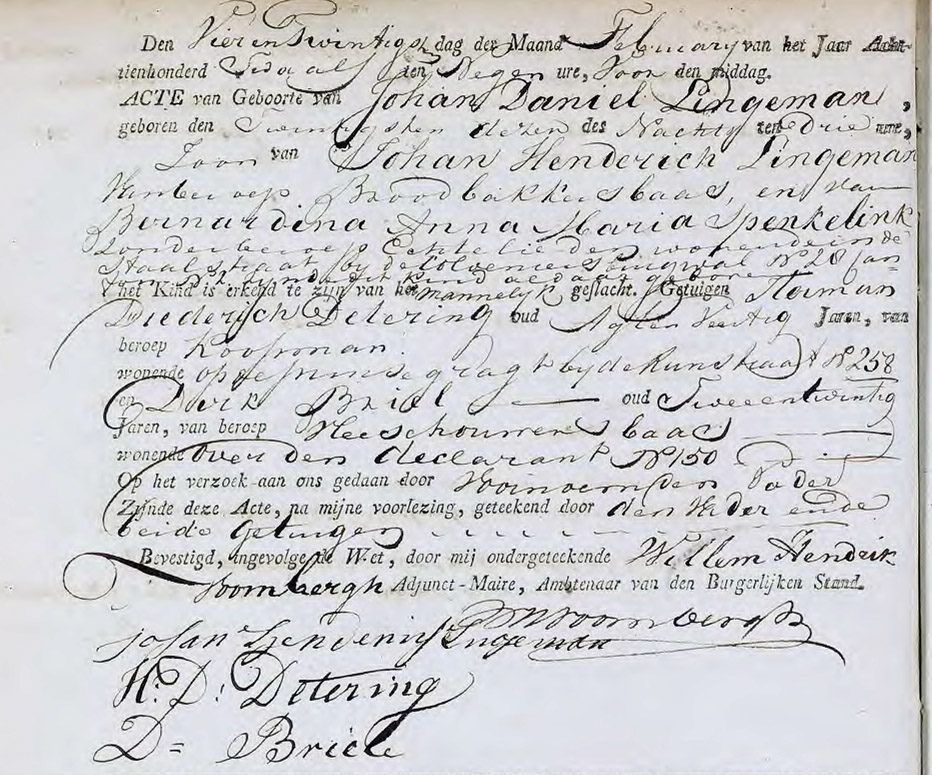 Den Vier en Twintigst dag der Maand February van het Jaar Acht-
tienhonderd Twaalf ten Negen ure, Voor den middag.
ACTE van Geboorte van Johan Daniel Lingeman,
geboren den Twintigsten dezer des Nachts ten drie ure,
Zoon van Johan Henderich Lingeman
Van beroep Broodbakkersbaas, en van
Bernardina Anna Maria Spenkelink
zonder beroep Echtelieden wonende in de
Staalstraat by de N° 28
het Kind is erkend te zijn van het mannelijk geslacht. Getuigen Herman
Diederich Detering oud Agt en Veertig Jaren, van
beroep Koopman.
wonende op de gragt by de straat N° 258
en Dirk Briel oud Twee en twintig
Jaren, van beroep baas
wonende over den declarant N° 150
Op het verzoek aan ons gedaan door Voornoemden Vader
Zijnde deze Acte, na mijne voorlezing, geteekend door den Vader ende
beide Getuigen
Bevestigd, ingevolge de Wet, door mij ondergeteekende Willem Hendrik
Voombergh Adjunct-Maire, Ambtenaar van den Burgerlijken Stand.
WHVoombergh
Johan Lingeman
H: D: Detering
D= Briele